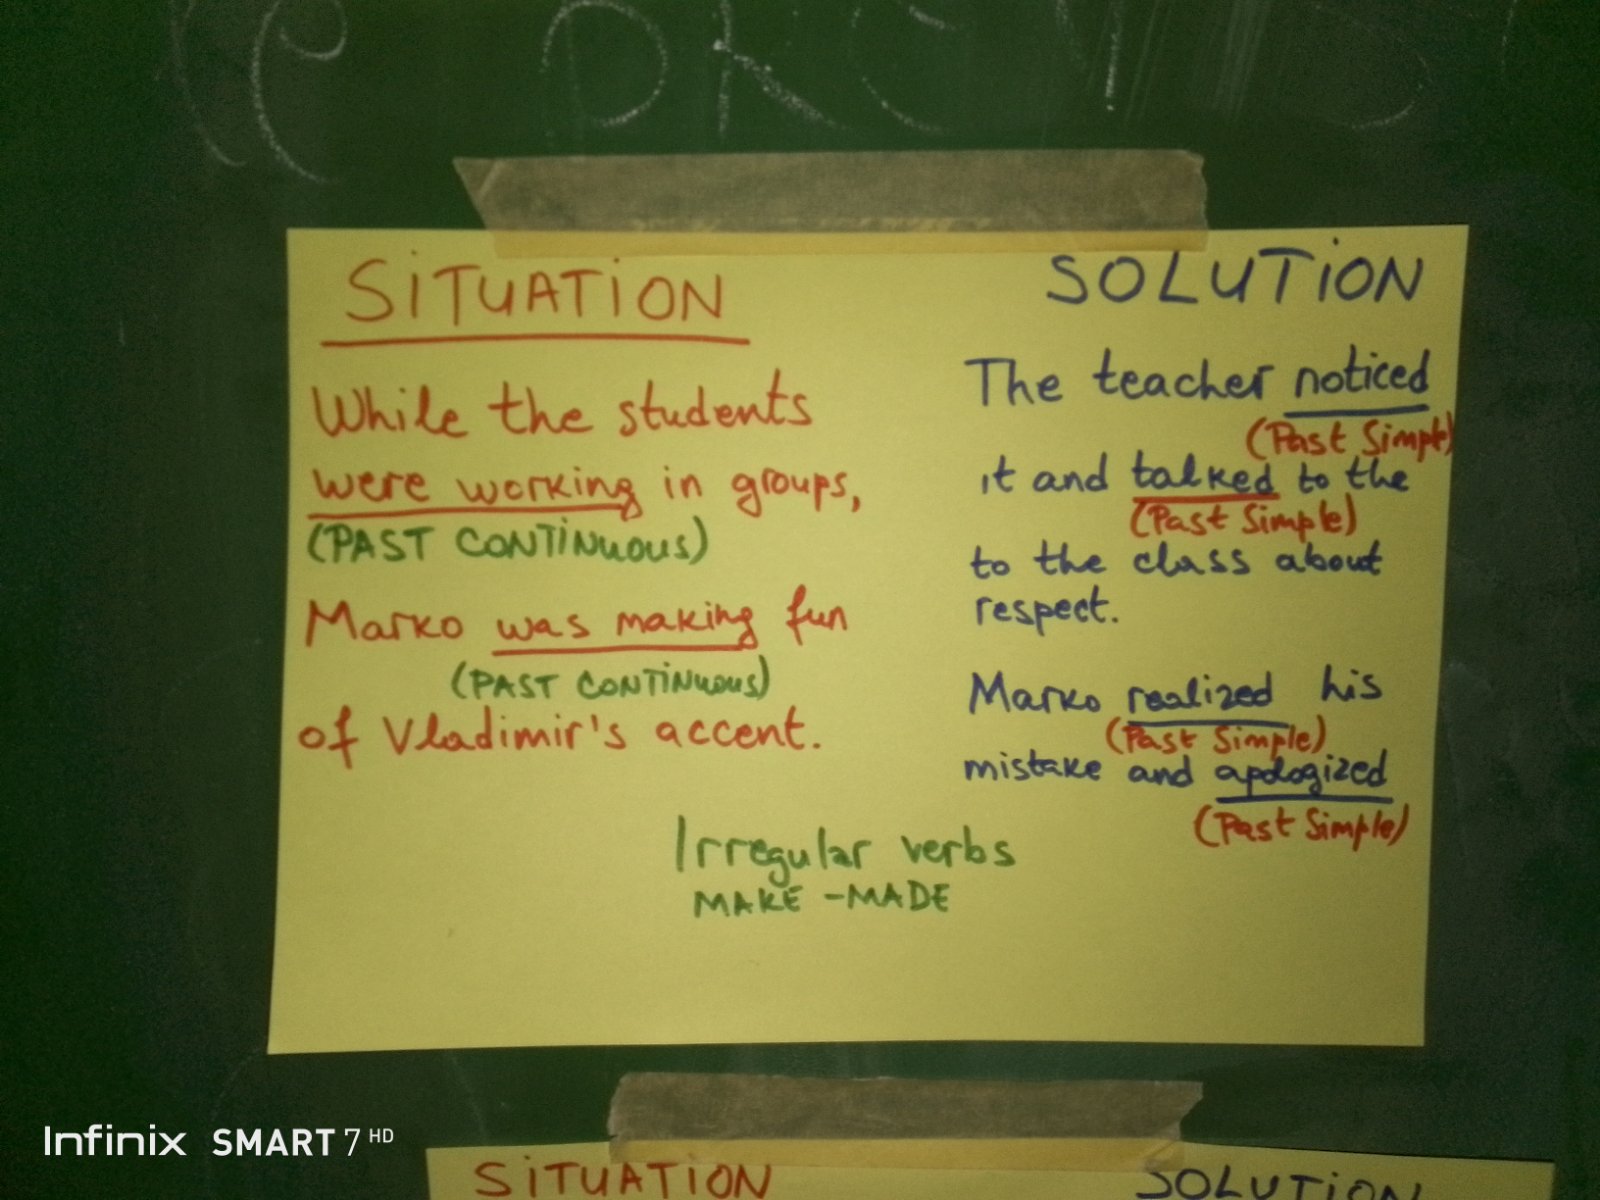 SiTUATiON
While the students
were working in groups,
(PAST CONTiNUOUS)
Marko was making fun
(PAST CONTiNUOUS)
of Vladimir's accent.
SOLUTiON
The teacher noticed
(Past Simple)
it and talked to the
(Past Simple)
to the class about
respect.
Marko realized his
(Past Simple)
mistake and apologized
(Past Simple)
Irregular verbs
MAKE - MADE
SiTUATiON
SOLUTiON
Infinix SMART 7 HD